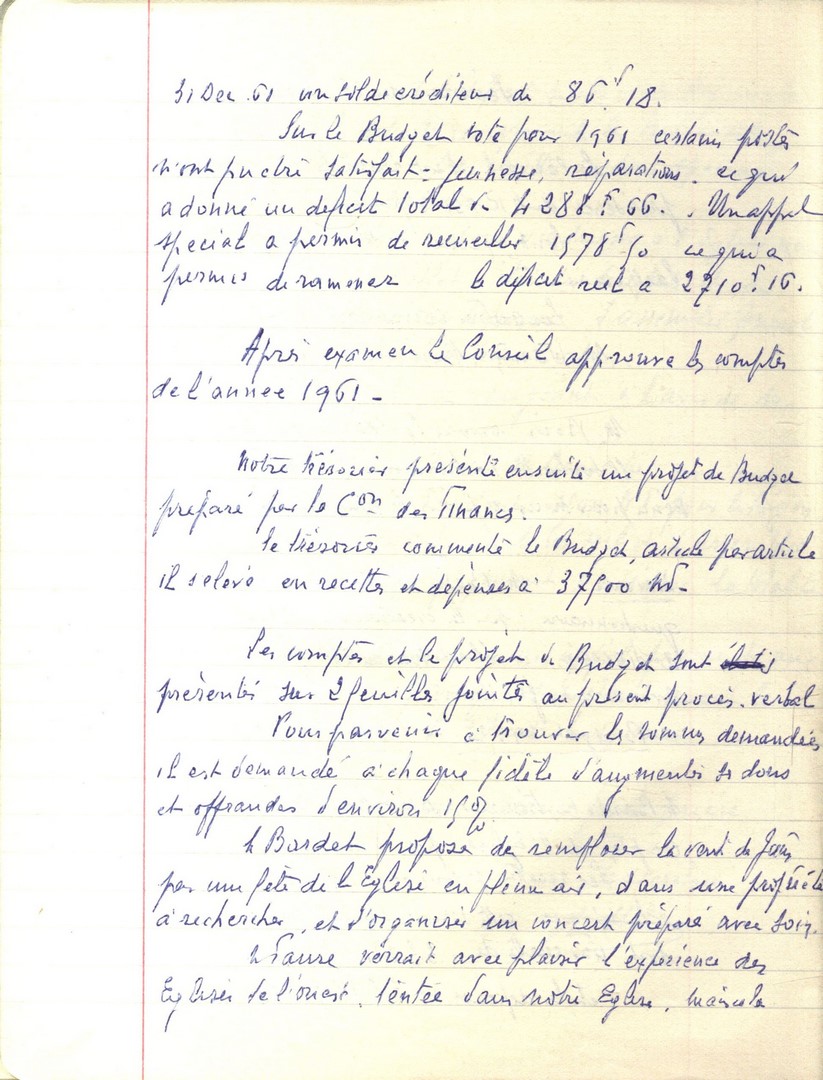 31 Dec. 61 un solde créditeur de 86 F 18.
Sur le Budget voté pour 1961 certains postes
n'ont pu être satisfait = jeunesse, réparations. ce qui
a donné un deficit total de 4288 F. 66. . Un appel
special a permis de recueillir 1578 F 50 ce qui a
permis de ramener le déficit reel a 2710 F. 16.
Après examen le Conseil approuve les comptes
de l'année 1961 -
Notre trésorier présente ensuite un projet de Budget
préparé par la Con des Finances.
le trésorier commente le Budget, article par article
il s'elève en recettes et dépenses à 37500 NF -
Les comptes et le projet de Budget sont
présentés sur 2 feuilles jointes au présent procès-verbal
Pour parvenir à trouver les sommes demandées
il est demandé à chaque fidèle d'augmenter ses dons
et offrandes d'environ 15%.
M Bardet propose de remplacer la vente de Juin
par une fête de l'Eglise en plein air, dans une propriété
à rechercher, et d'organiser un concert préparé avec soin.
M Faure verrait avec plaisir l'expérience des
Eglises de l'ouest, tentée dans notre Eglise, mais la